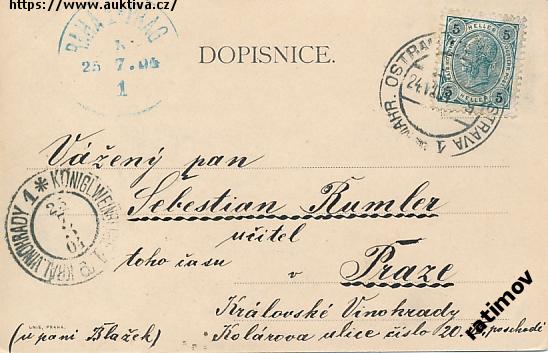 https://www.auktiva.cz/
PRAHA PRAG
25 7.04
1
DOPISNICE.
5 HELLER 5
MÄHR. OSTRAU
OSTRAVA 1
Vážený pan
Sebestian Rumler
učitel
toho času
v Praze
Královské Vinohrady
(u paní Blažek) Kolárova ulice číslo 20. poschodí
KÖNIGL. WEINBERGE
KRÁL. VINOHRADY 1
UNIE, PRAHA.
ratimov